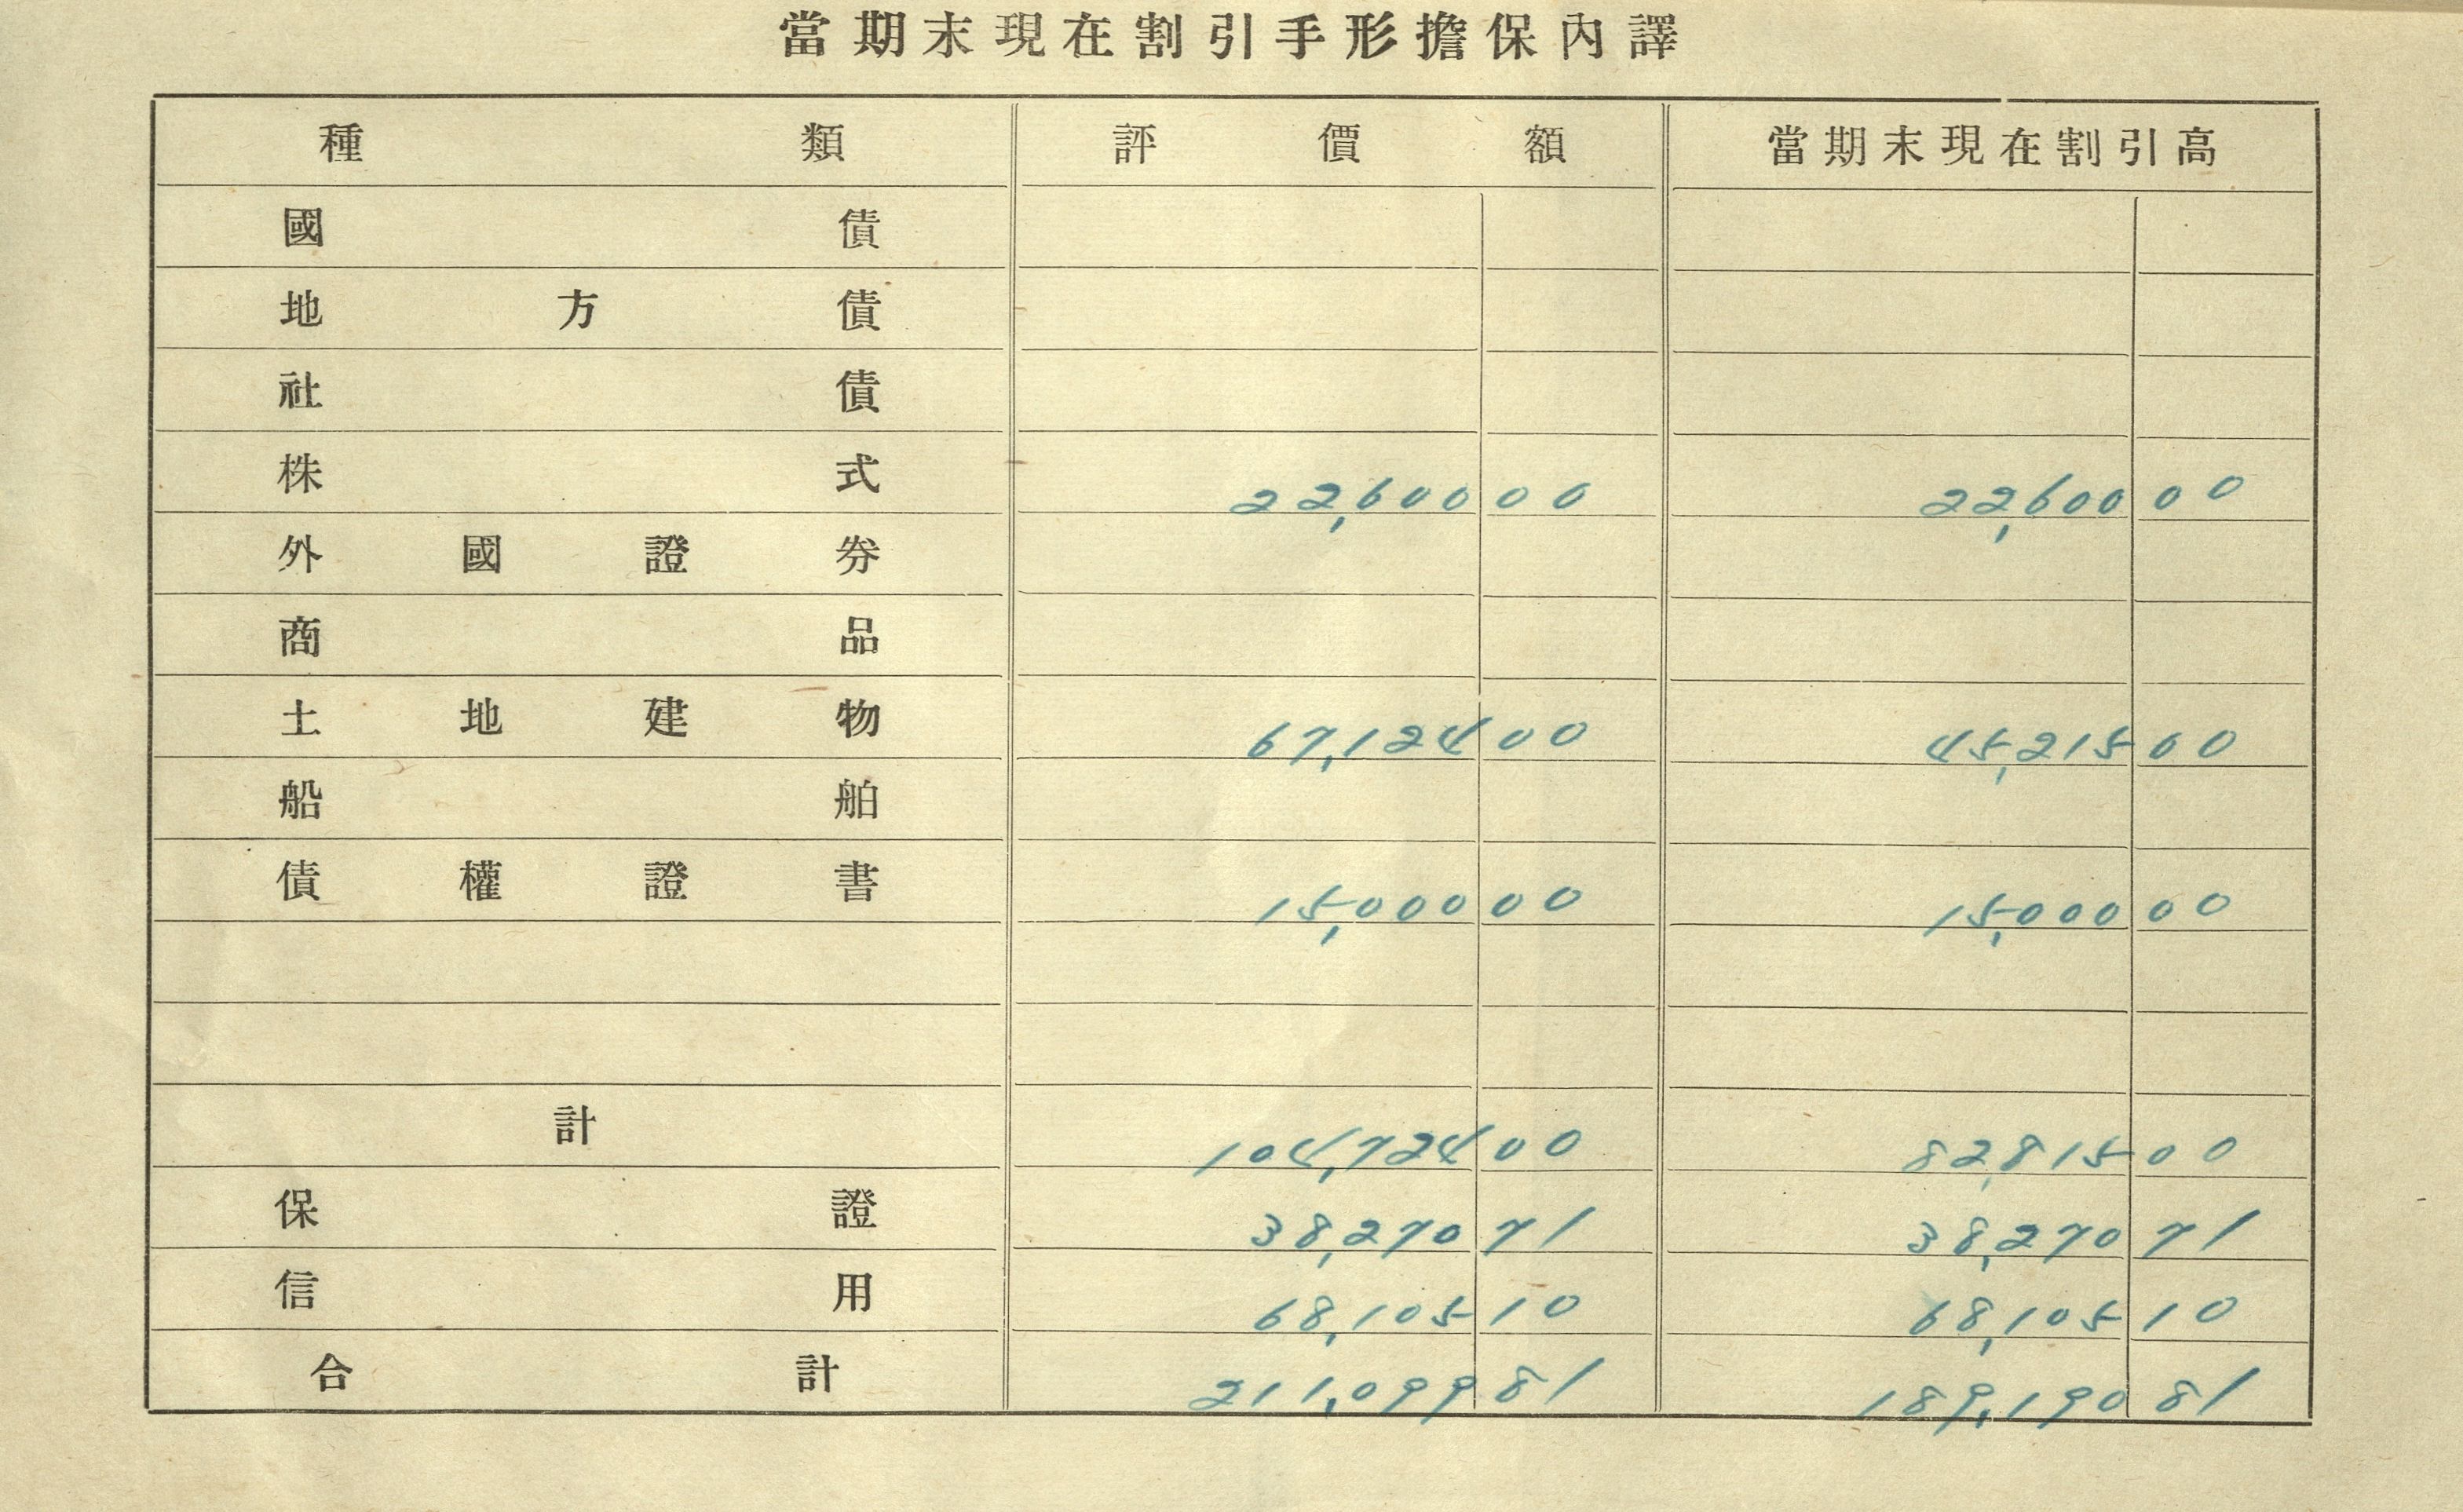 當期末現在割引手形擔保內譯
種類 評價額 當期末現在割引高
國債
地方債
社債
株式 22,600 00 22,600 00
外國證券
商品
土地建物 67,124 00 45,215 00
船舶
債權證書 15,000 00 15,000 00
計 104,724 00 82,815 00
保證 38,270 71 38,270 71
信用 68,105 10 68,105 10
合計 211,099 81 189,190 81